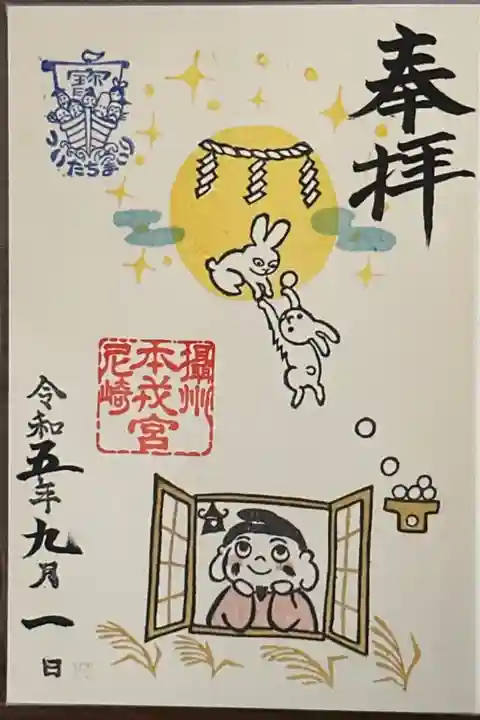 奉拝
宝
たちま
攝州
本戎宮
尼崎
令和五年九月一日